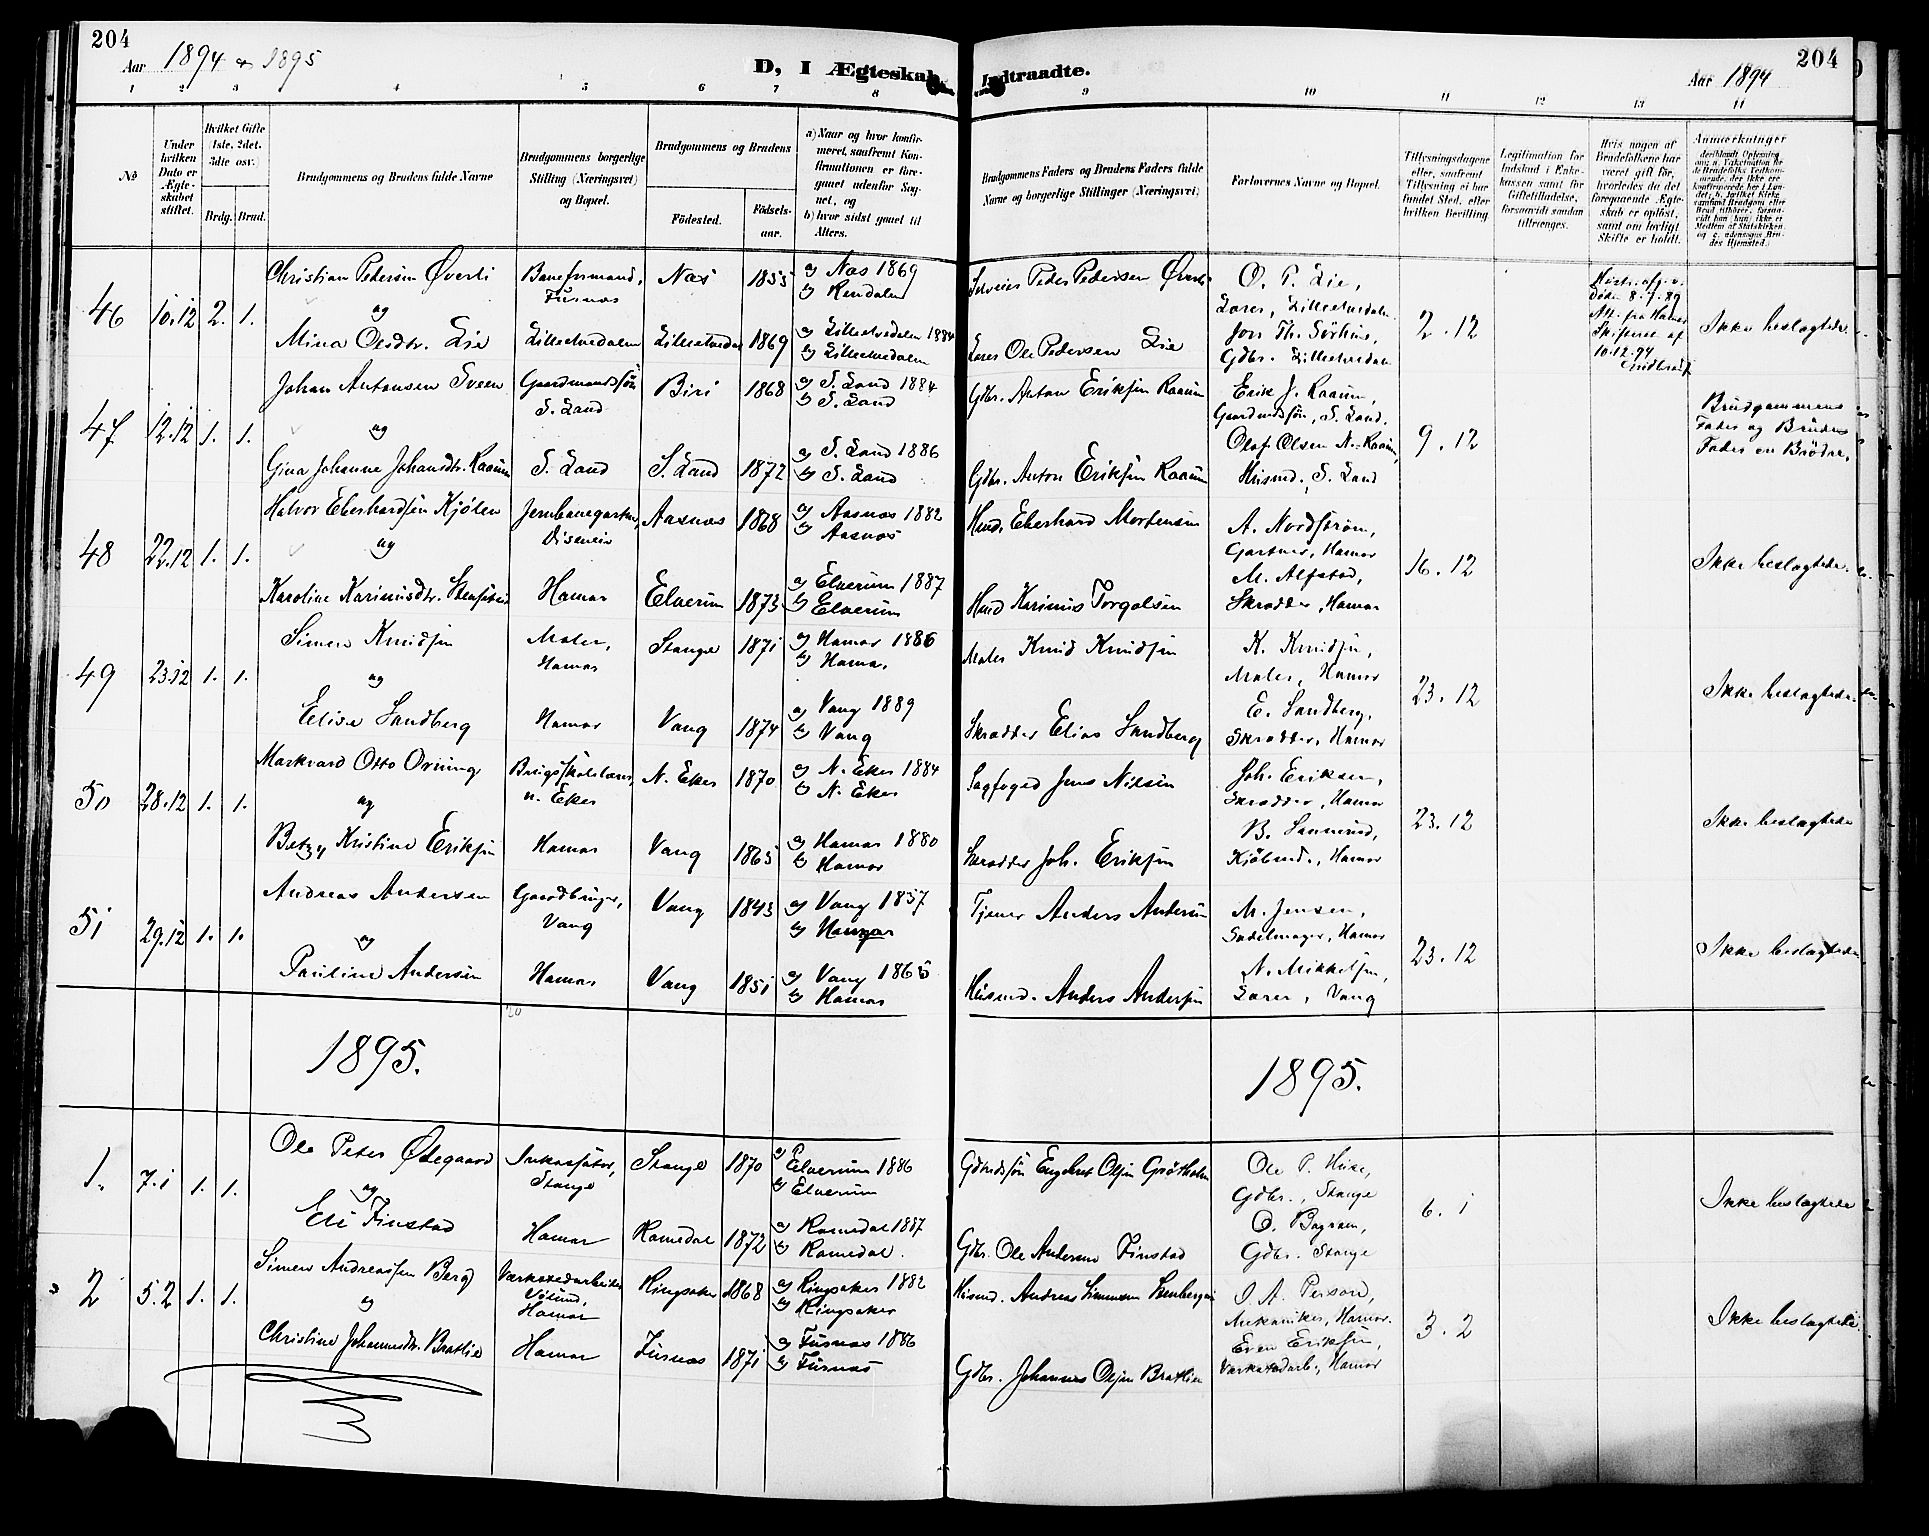 204
Aar 1894 & 1895
D, I Ægteskab Indtraadte.
204
Aar 1894
1 2 3 4 5 6 7 8 9 10 11 12 13 14
No
Under hvilken Dato er Ægteskabet stiftet.
Hvilket Gifte (1ste, 2det, 3die osv.)
Brdg. Brud.
Brudgommens og Brudens fulde Navne
Brudgommens borgerlige Stilling (Næringsvei) og Bopæl.
Brudgommens og Brudens
Födested.
Födselsaar.
a) Naar og hvor konfirmeret, saafremt Konfirmationen er foregaaet udenfor Sognet, og
b) hvor sidst gaaet til Alters.
Brudgommens Faders og Brudens Faders fulde Navne og borgerlige Stillinger (Næringsvei)
Forlovernes Navne og Bopæl.
Tillysningsdagene eller, saafremt Tillysning ei har fundet Sted, efter hvilken Bevilling
Legitimation for Indskud i Enkekassen samt for Giftetilladelse, forsaavidt saadan tiltrænges.
Hvis nogen af Brudefolkene har været gift før, hvorledes da det foregaaende Ægteskab er opløst, samt om lovligt Skifte er holdt.
Anmærkninger
46 10.12 2. 1.
Christian Pedersen Øverli
Baneformand, Furnæs
Næs 1855
a) Næs 1869
b) Rendalen
Selveier Peder Pedersen Øverli
O. P. Lie,
Lærer, Lilleelvedalen
Jon Th. Sörhus,
Gdbr. Lilleelvedalen
2.12
Ikke beslægtede
og
Mina Olsdtr. Lie
Lilleelvedalen
Lilleelvedal 1869
a) Lilleelvedalen 1884
b) Lilleelvedalen
Lærer Ole Pedersen Lie
47 12.12 1. 1.
Johan Antonsen Sveen
Gaardmandssön S. Land
Biri 1868
a) S. Land 1884
b) S. Land
Gdbr. Anton Eriksen Raaum
Erik J. Raaum,
Gaardmdssön, S. Land.
Olaf Olsen N. Raaum,
Husmd., S. Land
9.12
Brudgommens
Fader og Brudens
Fader er Brödre.
og
Gina Johanne Johansdtr. Raaum
S. Land
S. Land 1872
a) S. Land 1886
b) S. Land
Gdbr. Anton Eriksen Raaum
48 22.12 1. 1.
Halvor Eberhardsen Kjölen
Jernbanegartner, Disenein
Aasnæs 1868
a) Aasnæs 1882
b) Aasnæs
Husmd. Eberhard Mortensen
A. Nordström,
Gartner, Hamar
M. Alfstad,
Skrædder, Hamar
16.12
Ikke beslægtede.
og
Karoline Karinusdtr. Stenstad
Hamar
Elverum 1873
a) Elverum 1887
b) Elverum
Husmd Karinus Torgalsen
49 23.12 1. 1.
Simen Knudsen
Maler, Hamar
Stange 1871
a) Hamar 1886
b) Hamar
Maler Knud Knudsen
K. Knudsen,
Maler, Hamar
E. Sandberg,
Skrædder, Hamar
23.12
Ikke beslægtede.
og
Elise Sandberg
Hamar
Vang 1874
a) Vang 1889
b) Vang
Skrædder Elias Sandberg
50 28.12 1. 1.
Markvard Otto Orning
Brugsskolelærer, n. Eker
N. Eker 1870
a) N. Eker 1884
b) N. Eker
Sagfoged Jens Nilsen
Joh. Eriksen,
Skrædder, Hamar
B. Sannerud,
Kjöbmd., Hamar
23.12
Ikke beslægtede
og
Betzy Kristine Eriksen
Hamar
Vang 1865
a) Hamar 1880
b) Hamar
Skrædder Joh. Eriksen
51 29.12 1. 1.
Andreas Andersen
Gaardbruger, Vang
Vang 1843
a) Vang 1857
b) Hamar
Tjener Anders Andersen
M. Jensen,
Sadelmager, Hamar
N. Mikkelsen,
Lærer, Vang
23.12
Ikke beslægtede
og
Pauline Andersen
Hamar
Vang 1851
a) Vang 1865
b) Hamar
Husmd. Anders Andersen
1895.
1895.
1. 7.1 1. 1.
Ole Peter Ødegaard
Inkassatör, Stange
Stange 1870
a) Elverum 1886
b) Elverum
Engebret Olsen
Ole P. Huse,
Gdbr., Stange
O. Bagrem,
Gdbr. Stange
6.1
Ikke beslægtede
og
Eli Finstad
Hamar
Romedal 1872
a) Romedal 1887
b) Romedal.
Gdbr. Ole Andersen Finstad
2 5.2 1. 1.
Simen Andreassen Berg
Værkstedarbeider, Hamar
Ringsaker 1868
a) Ringsaker 1882
b) Ringsaker
Husmd. Andreas Simensen
O. A. Person,
Mekaniker, Hamar.
Even Eriksen,
Værkstedarb., Hamar
3.2
Ikke beslægtede.
og
Christine Johannesdtr. Bratlie
Hamar
Furnæs 1871
a) Furnæs 1886
b) Furnæs
Gdbr. Johannes Olsen Bratlien